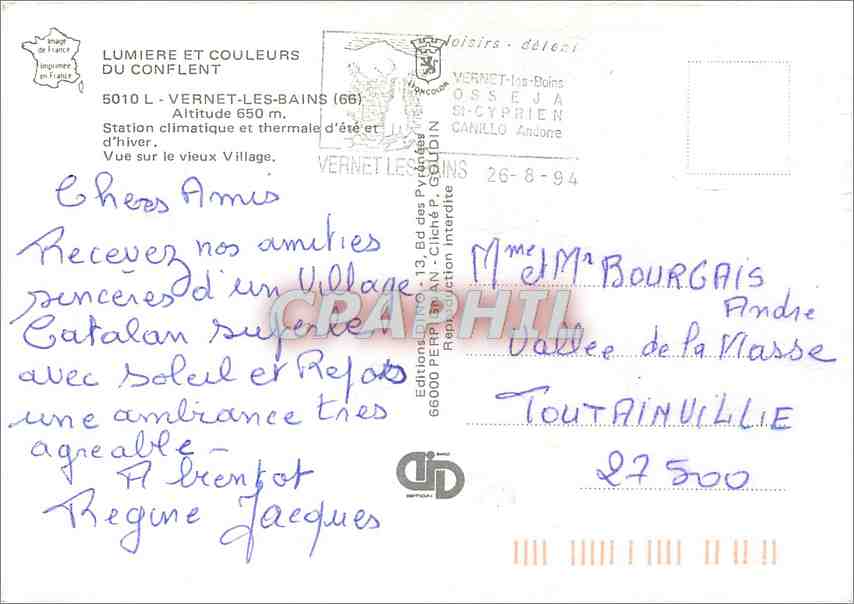 Image
de France
imprimée
en France
LUMIERE ET COULEURS
DU CONFLENT
5010 L - VERNET-LES-BAINS (66)
Altitude 650 m.
Station climatique et thermale d'été et
d'hiver.
Vue sur le vieux Village.
loisirs - détent
VERNET-les-Bains
OSSEJA
St-CYPRIEN
CANILLO Andorre
VERNET LES BAINS 26-8-94
Chers Amis
Recevez nos amities
sincères d'un Village
Catalan
avec soleil et Repos
une ambiance tres
agreable -
A bientot
Regine Jacques
Editions DINO - 13, Bd des Pyrénées
66000 PERPIGNAN - Cliché P. GOUDIN
Reproduction Interdite
CPAPHIL
Mme et Mr BOURGAIS
Andre
Vallee de la Masse
TOUTAINVILLIE
27500